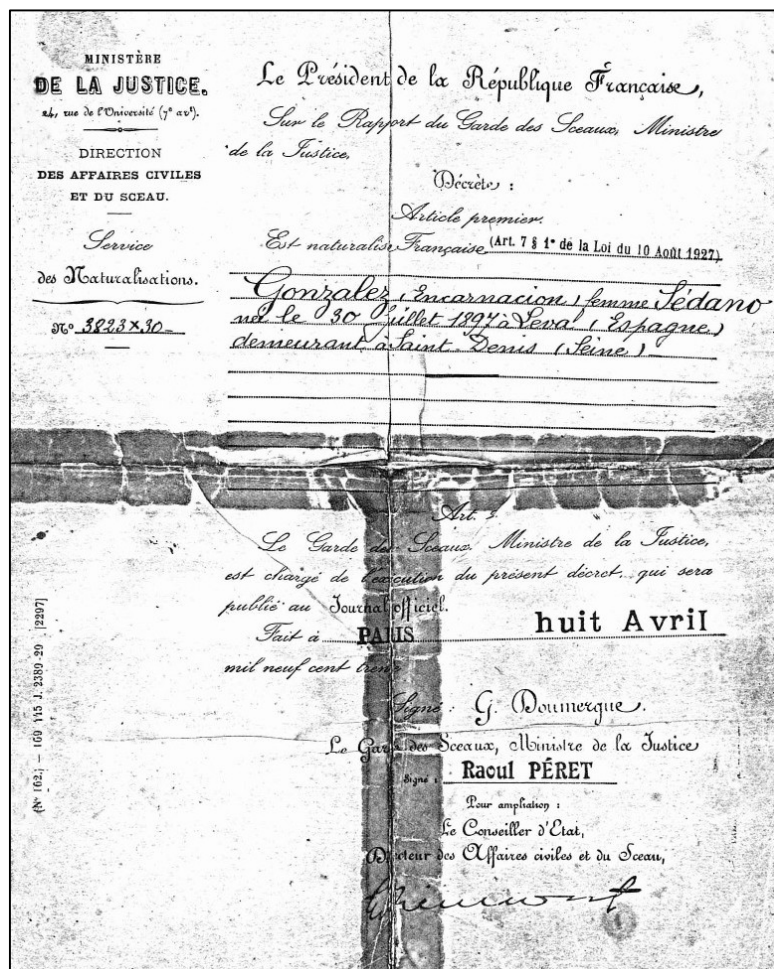 MINISTÈRE
DE LA JUSTICE.
24, rue de l'Université (7e arr.).
DIRECTION
DES AFFAIRES CIVILES
ET DU SCEAU.
Service
des Naturalisations.
N° 3823x30
Le Président de la République Française,
Sur le Rapport du Garde des Sceaux, Ministre
de la Justice,
Décrète :
Article premier.
Est naturalisé Française (Art. 7 § 1° de la Loi du 10 Août 1927)
Gonzalez (Encarnacion) femme Sédano
née le 30 juillet 1897 à Leva (Espagne)
demeurant à Saint-Denis (Seine)
Art.
Le Garde des Sceaux, Ministre de la Justice,
est chargé de l'exécution du présent décret, qui sera
publié au Journal officiel.
Fait à PARIS huit Avril
mil neuf cent trente
Signé : G. Doumergue.
Le Garde des Sceaux, Ministre de la Justice
Signé : Raoul PÉRET
Pour ampliation :
Le Conseiller d'Etat,
Directeur des Affaires civiles et du Sceau,
(N° 162.) — 160 115 J. 2389-29 [2297]